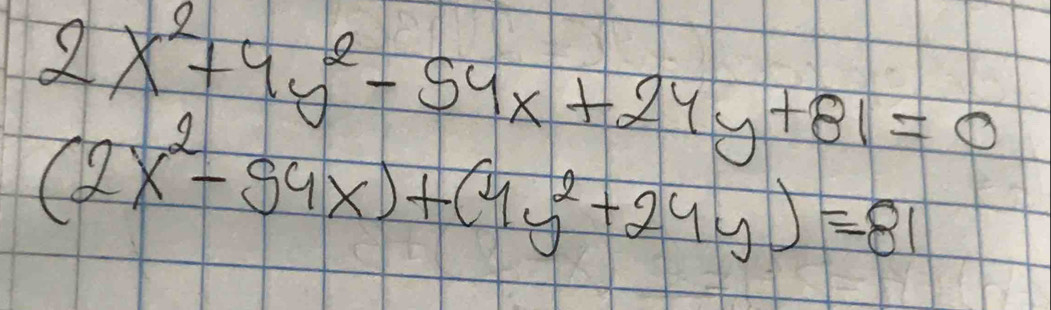 2x² + 4y² - 54x + 24y + 81 = 0
(2x² - 54x) + (4y² + 24y) = 81